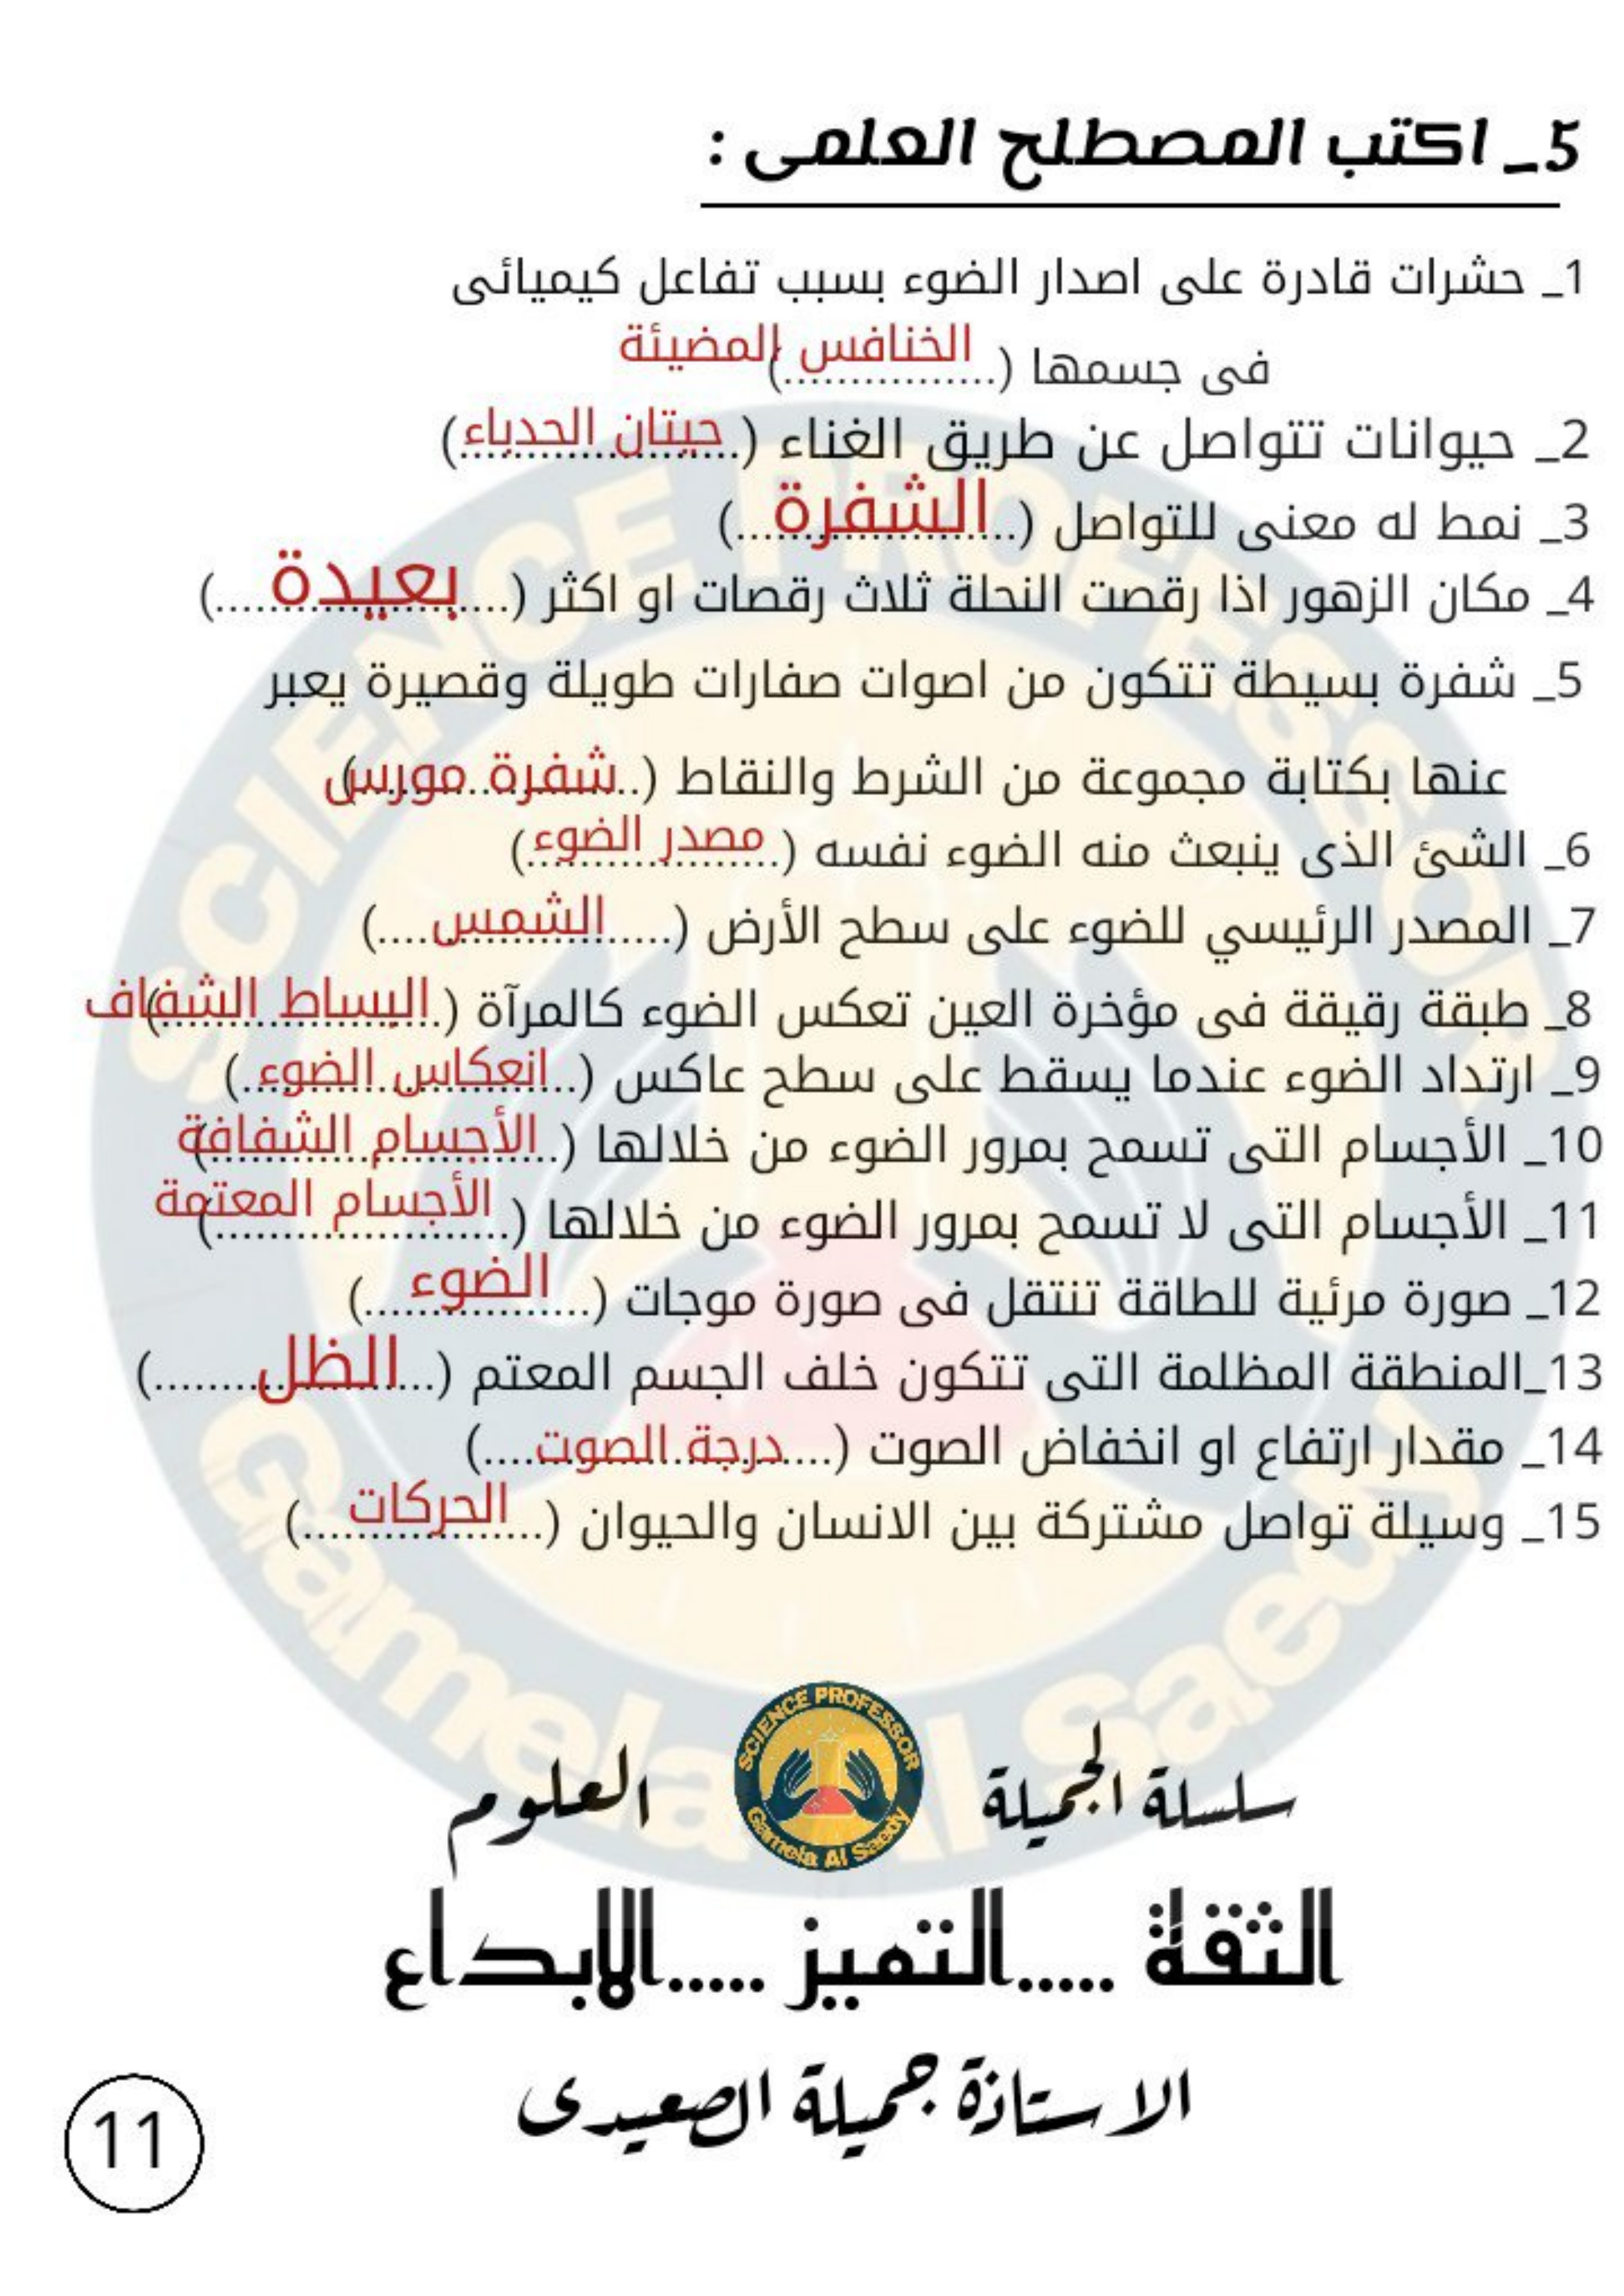 5_ اكتب المصطلح العلمى :
1_ حشرات قادرة على اصدار الضوء بسبب تفاعل كيميائى
فى جسمها (................) الخنافس المضيئة
2_ حيوانات تتواصل عن طريق الغناء (حيتان الحدباء)
3_ نمط له معنى للتواصل (الشفرة)
4_ مكان الزهور اذا رقصت النحلة ثلاث رقصات او اكثر (بعيدة)
5_ شفرة بسيطة تتكون من اصوات صفارات طويلة وقصيرة يعبر
عنها بكتابة مجموعة من الشرط والنقاط (شفرة مورس)
6_ الشئ الذى ينبعث منه الضوء نفسه (مصدر الضوء)
7_ المصدر الرئيسي للضوء على سطح الأرض (الشمس)
8_ طبقة رقيقة فى مؤخرة العين تعكس الضوء كالمرآة (البساط الشفاف)
9_ ارتداد الضوء عندما يسقط على سطح عاكس (انعكاس الضوء)
10_ الأجسام التى تسمح بمرور الضوء من خلالها (الأجسام الشفافة)
11_ الأجسام التى لا تسمح بمرور الضوء من خلالها (الأجسام المعتمة)
12_ صورة مرئية للطاقة تنتقل فى صورة موجات (الضوء)
13_المنطقة المظلمة التى تتكون خلف الجسم المعتم (الظل)
14_ مقدار ارتفاع او انخفاض الصوت (درجة الصوت)
15_ وسيلة تواصل مشتركة بين الانسان والحيوان (الحركات)
SCIENCE PROFESSOR
Gamela Al Saedy
سلسلة الجميلة
SCIENCE PROFESSOR
Gamela Al Saedy
العلوم
الثقة .....التميز .....الابداع
الاستاذة جميلة الصعيدى
11